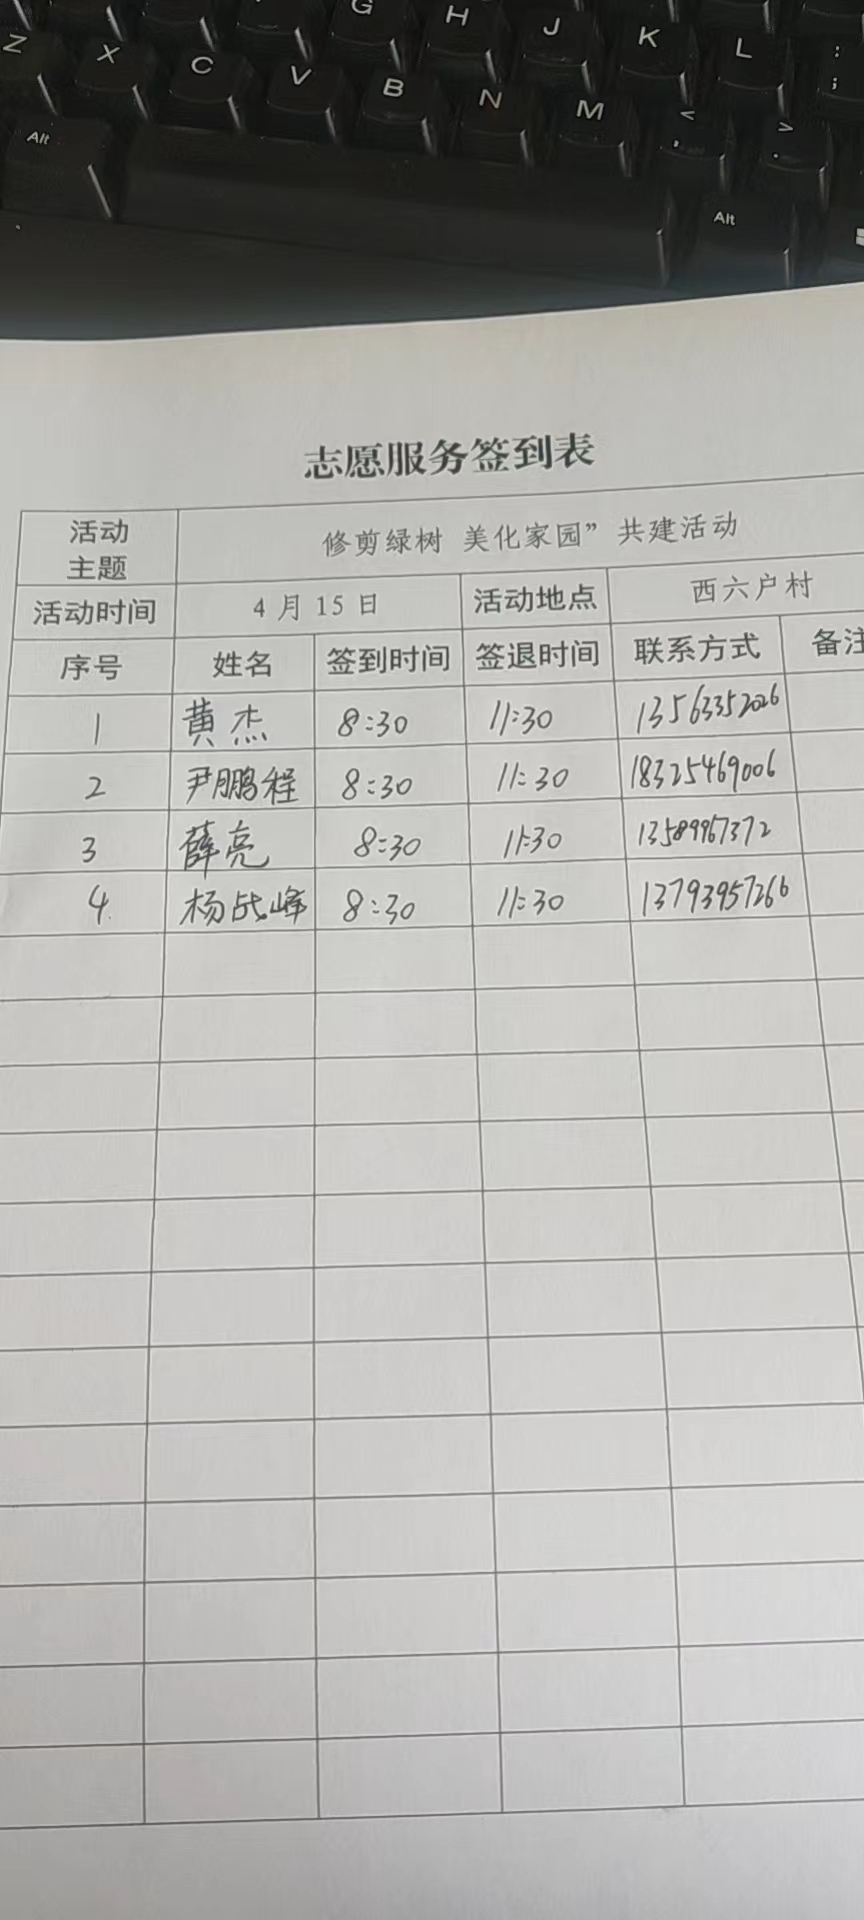 G H J K L : ;
Z X C V B N M < , > .
Alt Alt
志愿服务签到表
活动主题 修剪绿树 美化家园” 共建活动
活动时间 4月15日 活动地点 西六户村
序号 姓名 签到时间 签退时间 联系方式 备注
1 黄杰 8:30 11:30 13563352026
2 尹鹏程 8:30 11:30 18325469006
3 薛亮 8:30 11:30 13589967372
4 杨战峰 8:30 11:30 13793957266